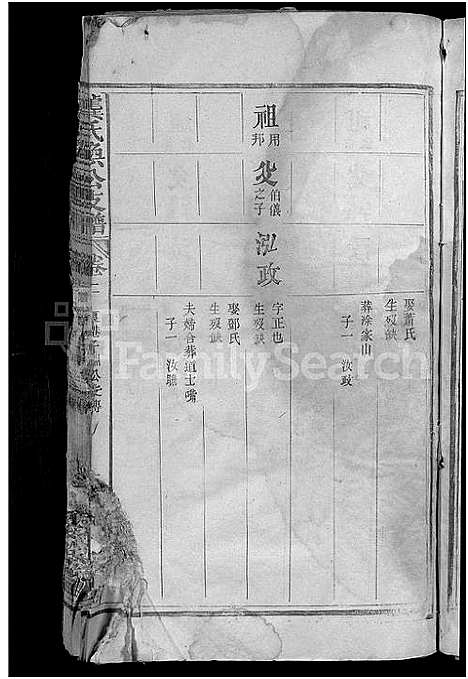 娶蕭氏
生歿缺
葬涂家山
子一 汝政
祖 用邦
父 伯儀之子
泓政
字正也
生歿缺
娶鄧氏
生歿缺
夫婦合葬道士嘴
子一 汝聽
龔氏 公支譜 卷
FamilySearch